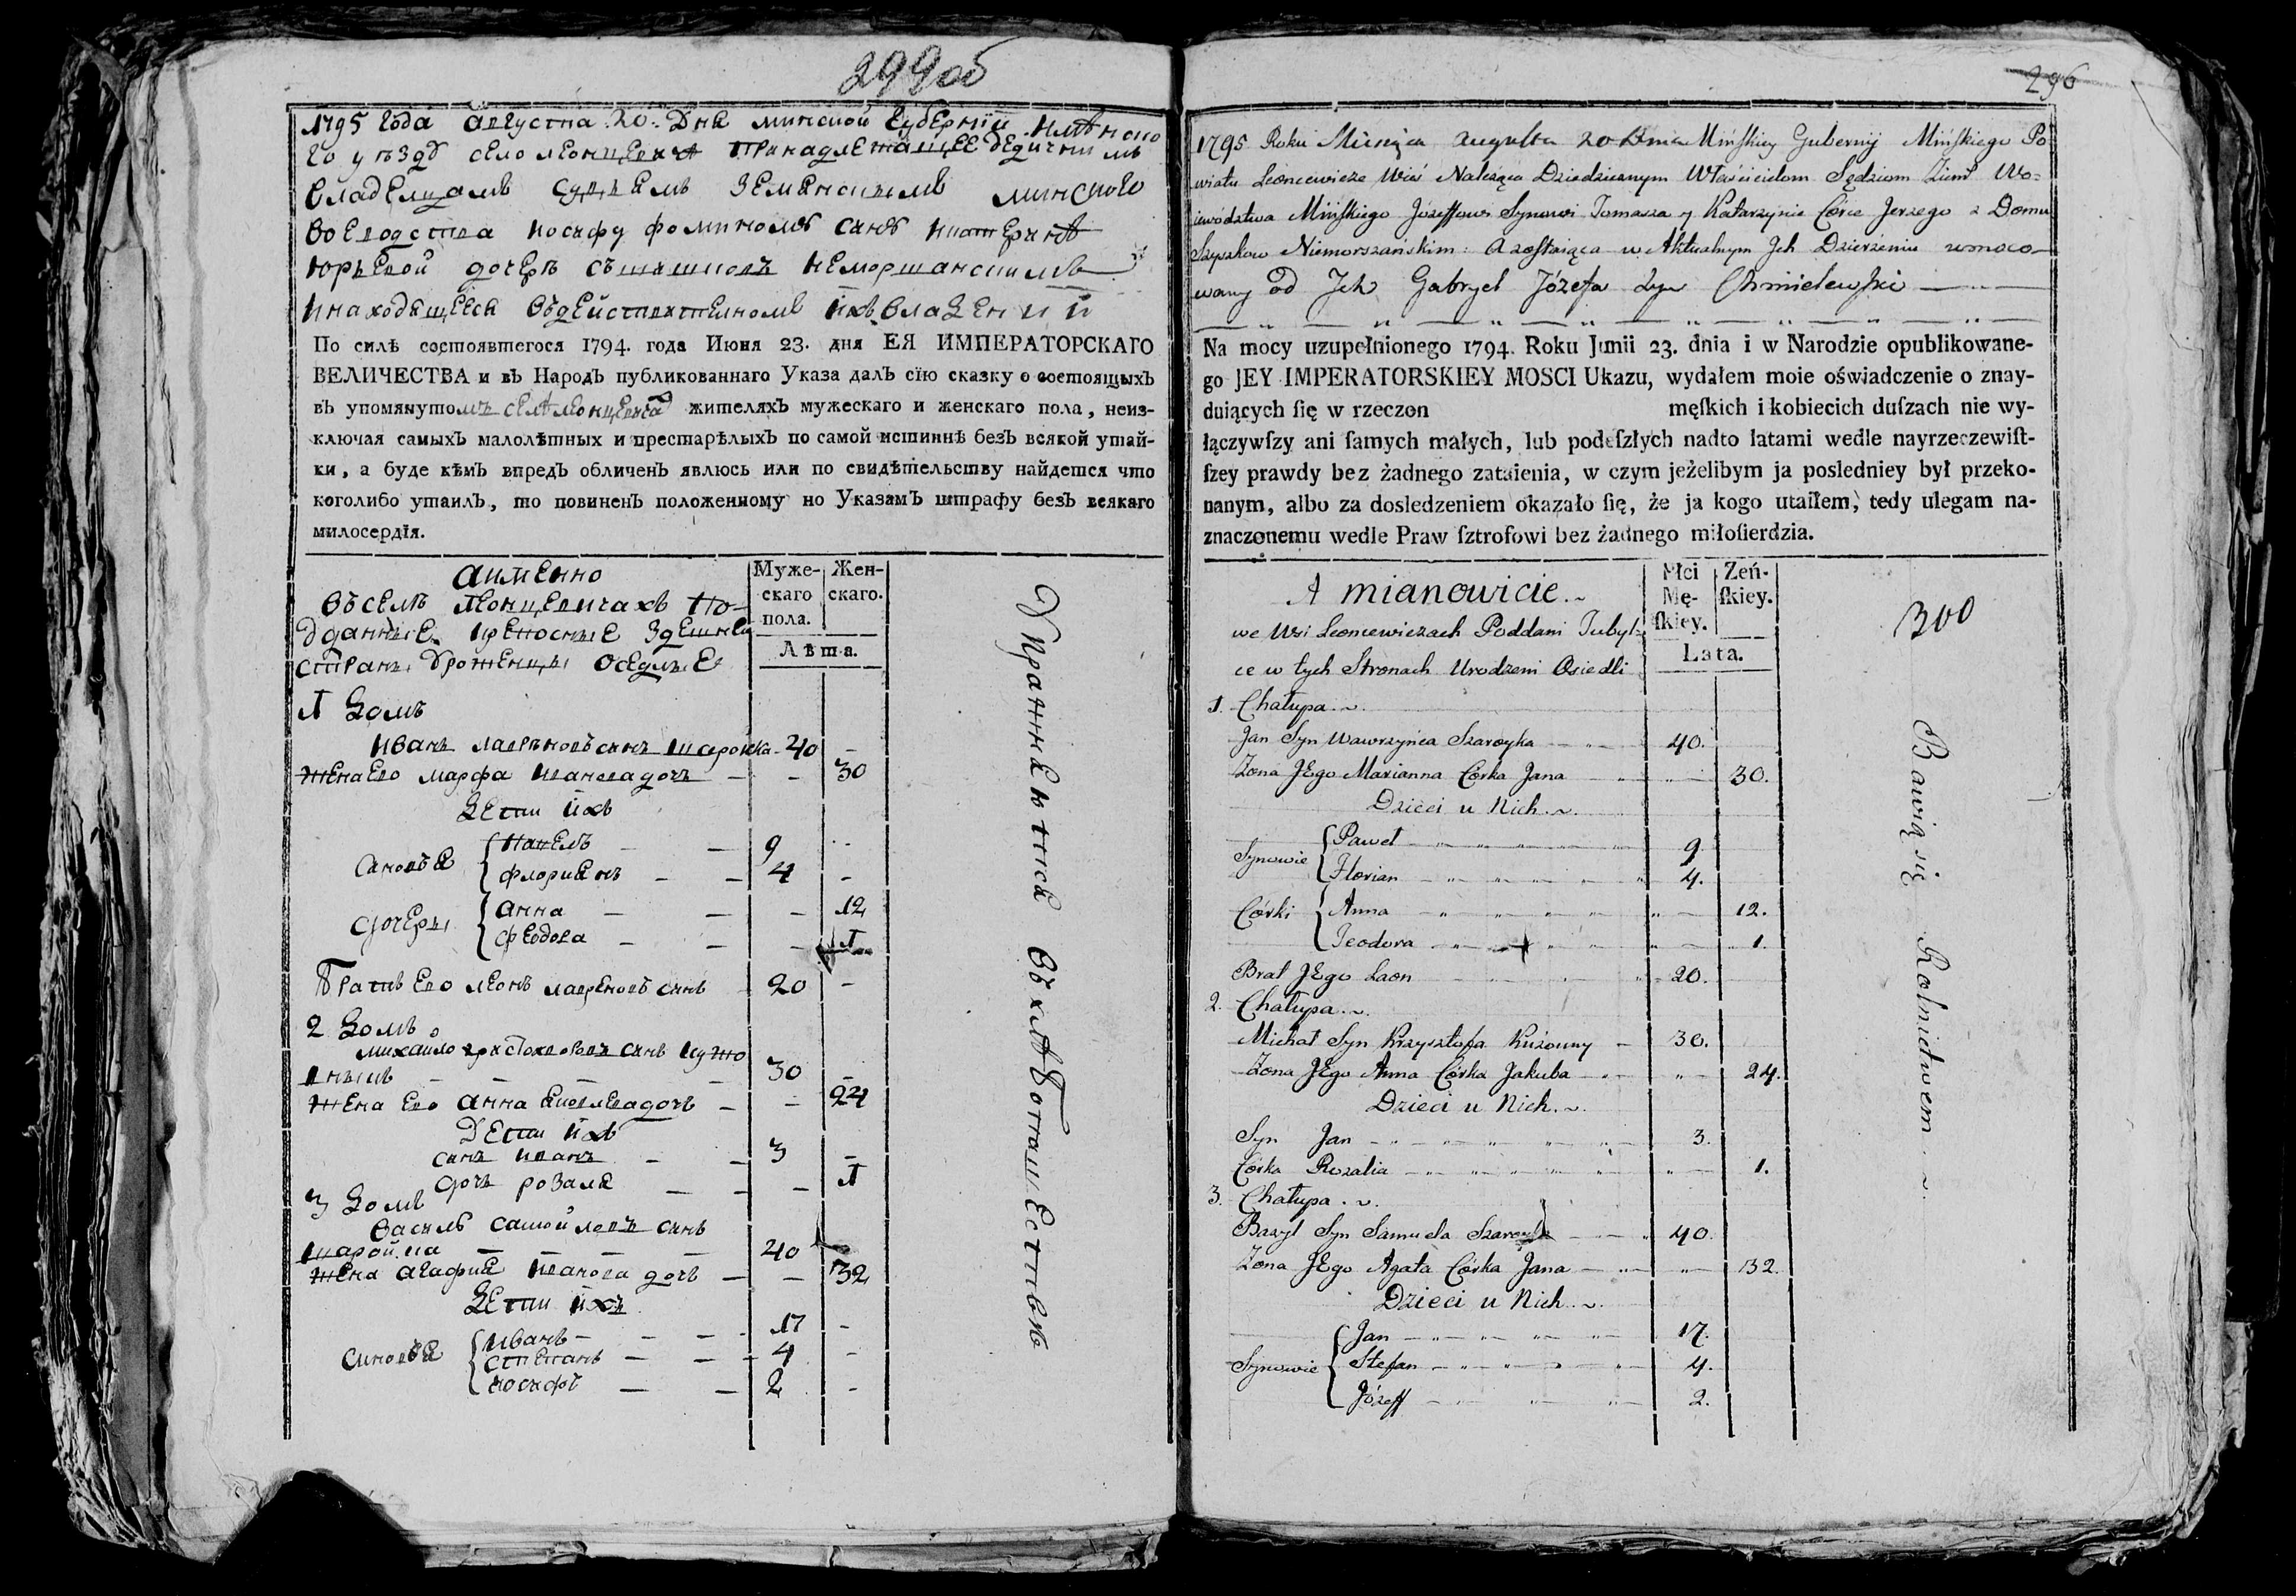 299об
1795 года Августа 20: Дня минской губернии минско
го уезда село леонцевича принадлежащее дедичным
владелцам судьям земянским минского
воеводства иосифу фоминому сину катерине
юрьевой дочере съшишков неморшанским
инаходящееся вдействителном их владении
По силѣ состоявшегося 1794. года Июня 23. дня ЕЯ ИМПЕРАТОРСКАГО
ВЕЛИЧЕСТВА и въ Народъ публикованнаго Указа далъ сїю сказку о состоящыхъ
въ упомянутомъ селѣ леонцевича жителяхъ мужескаго и женскаго пола, неиз-
ключая самыхъ малолѣтных и престарѣлыхъ по самой истиннѣ безъ всякой утай-
ки, а буде кѣмъ впредъ обличенъ явлюсь или по свидѣтельству найдется что
коголибо утаилъ, то повиненъ положенному по Указамъ штрафу безъ всякаго
милосердїя.
Аименно
Въселе леонцевичах по-
дданные, здешней
страны вроженцы оседлые
Муже-
скаго
пола.
Жен-
скаго.
Лѣта.
1 Домъ
Иванъ лавреновъ синъ шаройка - 40 -
Жена его марфа иванова дочъ - - 30
Дети их
Синовья
Павелъ - - 9 -
флориянъ - - 4 -
дочеры
Анна - - - 12
феодора - - - 1
Братъ его леонъ лавреновъ синъ 20 -
2 Домъ
михайло христофоровъ синъ кужо
вный - - - 30 -
Жена его Анна яковлева дочъ - - 24
Дети их
синъ иванъ - - 3 -
дочъ розаля - - - 1
3 Домъ
Василъ самойловъ синъ
шаройка - - - - 40 -
Жена агафия иванова дочъ - - 32
Дети ихъ
синовья
Иванъ - - - 17 -
степанъ - - - 4 -
иосифъ - - 2 -
Упражняются въхлѣбопашестве
296
1795 Roku Miesiąca Augusta 20 Dnia Mińſkiey Gubernij Mińſkiego Po
wiatu Leoncewicze Wieś Należąca Dziedzicznym Właścicielom Sędziom Ziem Wo-
iewództwa Mińſkiego Józeffowi Synowi Tomasza y Katarzynie Córce Jerzego z Domu
Szyszkow Niemorszańskim: A zostaiąca w Aktualnym Jch Dzierżeniu umoco-
wany od Jch Gabryel Józefa Syn Chmielewſki
Na mocy uzupełnionego 1794. Roku Junii 23. dnia i w Narodzie opublikowane-
go JEY IMPERATORSKIEY MOSCI Ukazu, wydałem moie oświadczenie o znay-
duiących ſię w rzeczon męſkich i kobiecich duſzach nie wy-
łączywſzy ani ſamych małych, lub podeſzłych nadto latami wedle nayrzeczewiſt-
ſzey prawdy bez żadnego zataienia, w czym jeżelibym ja posledniey był przeko-
nanym, albo za dosledzeniem okazało ſię, że ja kogo utaiłem, tedy ulegam na-
znaczonemu wedle Praw ſztrofowi bez żadnego miłoſierdzia.
A mianowicie.
we Wsi Leoncewiczach Poddani Tubyl-
ce w tych Stronach Urodzeni Osiedli
Płci
Mę-
ſkiey.
Żeń-
ſkiey.
Lata.
300
1. Chałupa.
Jan Syn Wawrzyńca Szaroyka 40.
Żona JEgo Marianna Córka Jana 30.
Dzieci u Nich.
Synowie
Paweł 9.
Florian 4.
Córki
Anna 12.
Teodora 1.
Brat JEgo Laon 20.
2. Chałupa.
Michał Syn Krzysztofa Kużowny 30.
Żona JEgo Anna Córka Jakuba 24.
Dzieci u Nich.
Syn Jan 3.
Córka Rozalia 1.
3. Chałupa.
Bazyl Syn Samuela Szaroyka 40.
Żona JEgo Agata Córka Jana 32.
Dzieci u Nich.
Synowie
Jan 17.
Stefan 4.
Józeff 2.
Bawią się Rolnictwem.